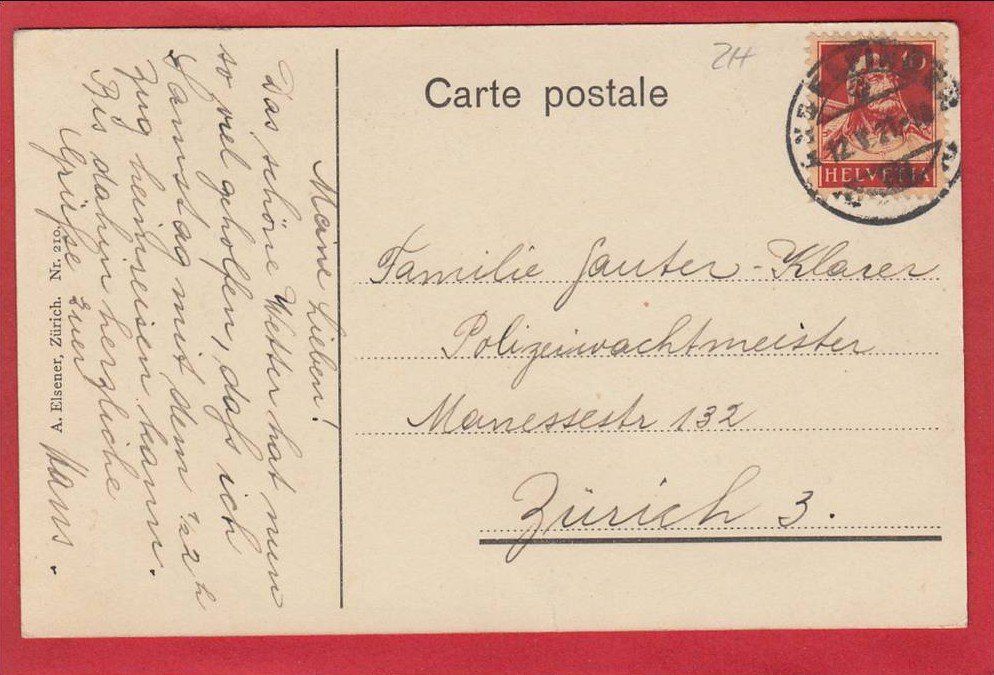 Carte postale
ZH
10
HELVETIA
12.V.21
Meine Lieben!
Das schöne Wetter hat nun
so viel geholfen, daß ich
Samstag mit dem ½2 h
Zug heimreisen kann.
Bis dahin herzliche
Grüße Euer
Hans.
Familie Sauter-Klarer
Polizeiwachtmeister
Manessestr 132
Zürich 3.
A. Elsener, Zürich. Nr. 210.